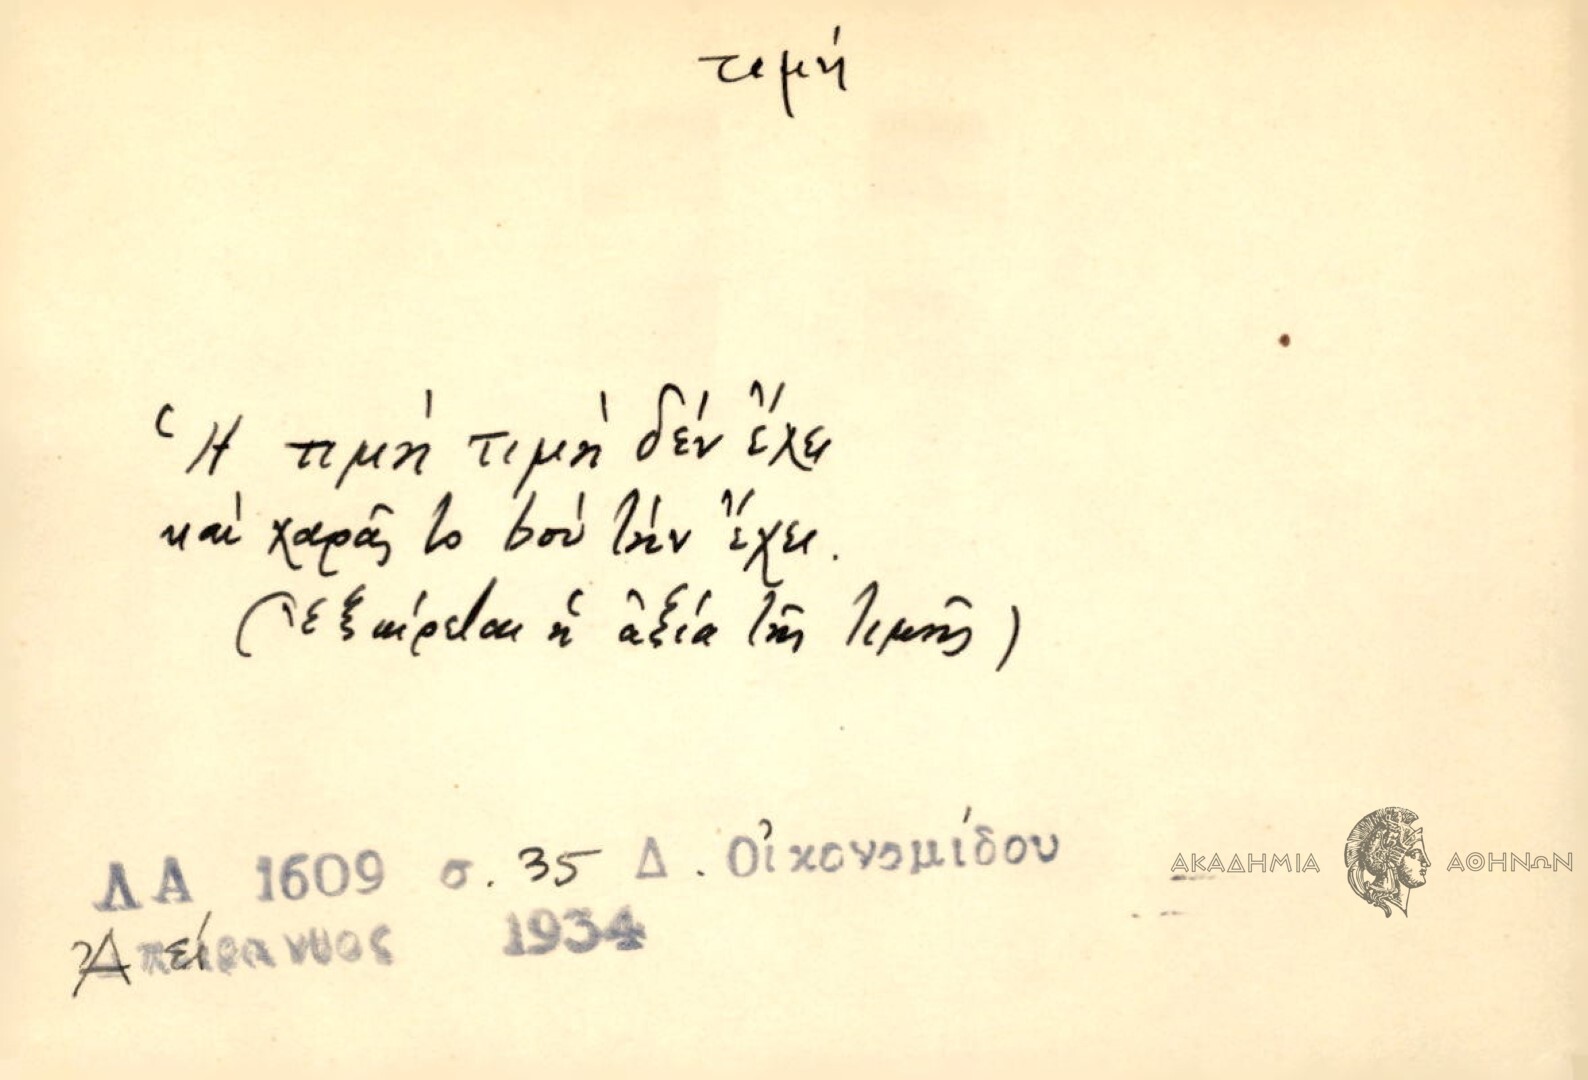 τιμή
Ἡ τιμή τιμή δέν ἔχει
καί χαρᾶς το που τήν ἔχει.
(ἐξαίρεται ἡ ἀξία τῆς τιμῆς)
ΛΑ 1609 σ. 35 Δ. Οἰκονομίδου
Ἀπείρανθος 1934
ΑΚΑΔΗΜΙΑ ΑΘΗΝΩΝ